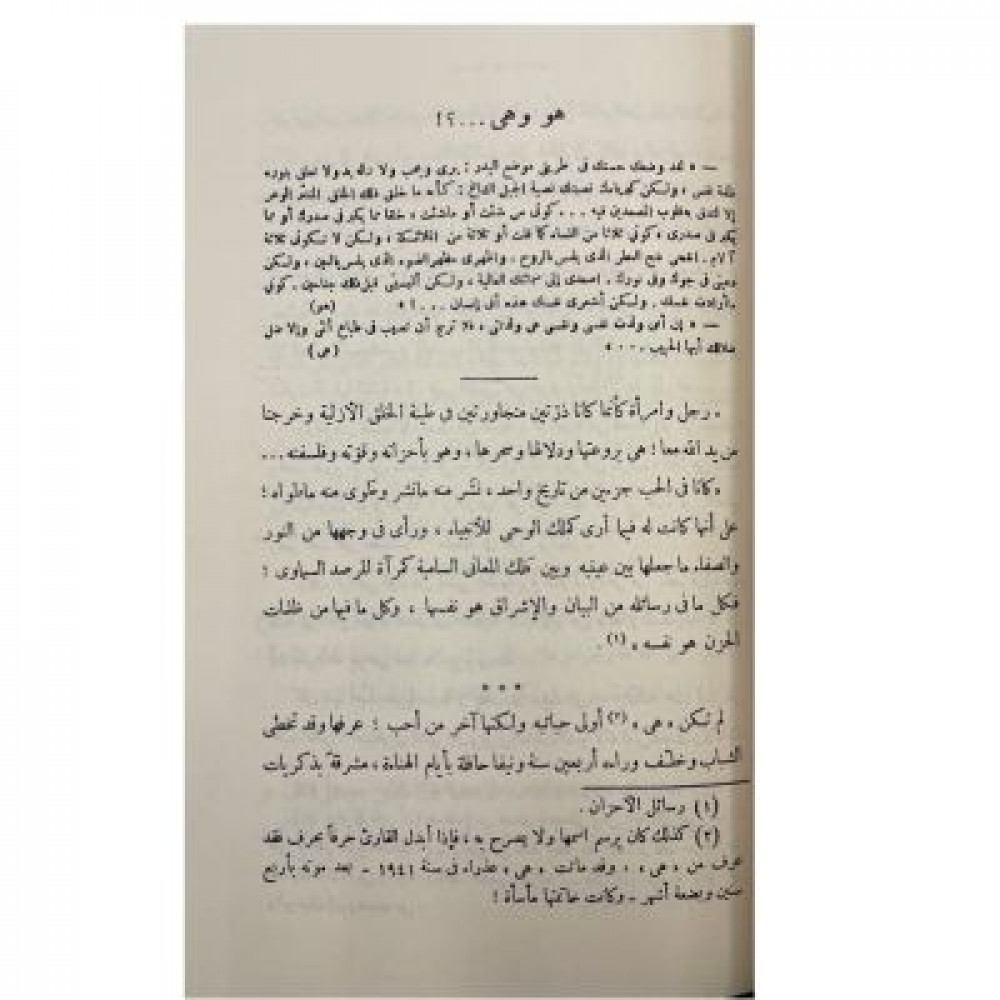 هو وهى...؟!
— « لقد وضعك حسنك فى طريقى موضع البدر : يرى ويحب ولا تناله يد ولا تعلق بنوره
ظلمة نفس ، ولكن كبرياءك نصبتك نصبة الجبل الشامخ : كأنه ما خلق ذلك الخلق المنتثر الوعر
إلا لتدق به قلوب المصعدين فيه ... كونى من شئت أو ما شئت ، خلقا مما يكبر فى صدرك أو مما
يكبر فى صدرى ، كونى ثلاثا من النساء كما قلت أو ثلاثة من الملائكة ، ولكن لا تكونى ثلاثة
آلام . انفحى نفح العطر الذى يلمس بالروح ، واظهرى مظهر الضوء الذى يلمس بالعين ، ولكن
دعينى فى جوك وفى نورك . اصعدى إلى سمائك العالية ، ولكن ألبسينى قبل ذلك جناحين . كونى
ما أرادت نفسك ولكن أشعرى نفسك هذه أنى إنسان ... ! » (هو)
— « إن أمى ولدت نفسى ونفسى هى ولدتنى ، فلا ترج أن تصيب فى طباع أنثى وإلا ضل
ضلالك أيها الحبيب ... » (هى)
« رجل وامرأة كأنما كانا ذرّتين متجاورتين فى طينة الخلق الأزلية وخرجتا
من يد الله معا ؛ هى بروعتها ودلالها وسحرها ، وهو بأحزانه وقوّته وفلسفته...
« كانا فى الحب جزءين من تاريخ واحد ، نُشر منه ما نشر وطُوى منه ما طواه ؛
على أنها كانت له فيما أرى كملك الوحى للأنبياء ، ورأى فى وجهها من النور
والصفاء ما جعلها بين عينيه وبين فلك المعانى السامية كمرآة المرصد السماوى ؛
فكل ما فى رسائله من البيان والإشراق هو نفسها ، وكل ما فيها من ظلمات
الحزن هو نفسه » (١) .
* * *
لم تكن « هى » (٢) أول حبائبه ولكنها آخر من أحب ؛ عرفها وقد تخطى
الشباب وخلّف وراءه أربعين سنة ونيفا حافلة بأيام الهناءة ، مشرقة بذكريات
(١) رسائل الأحزان .
(٢) كذلك كان يرسم اسمها ولا يصرح به ، فإذا أبدل القارئ حرفاً بحرف فقد
عرف من « هى » ، وقد ماتت « هى » عذراء فى سنة ١٩٤١ - بعد موته بأربع
سنين وبضعة أشهر - وكانت خاتمتها مأساة !